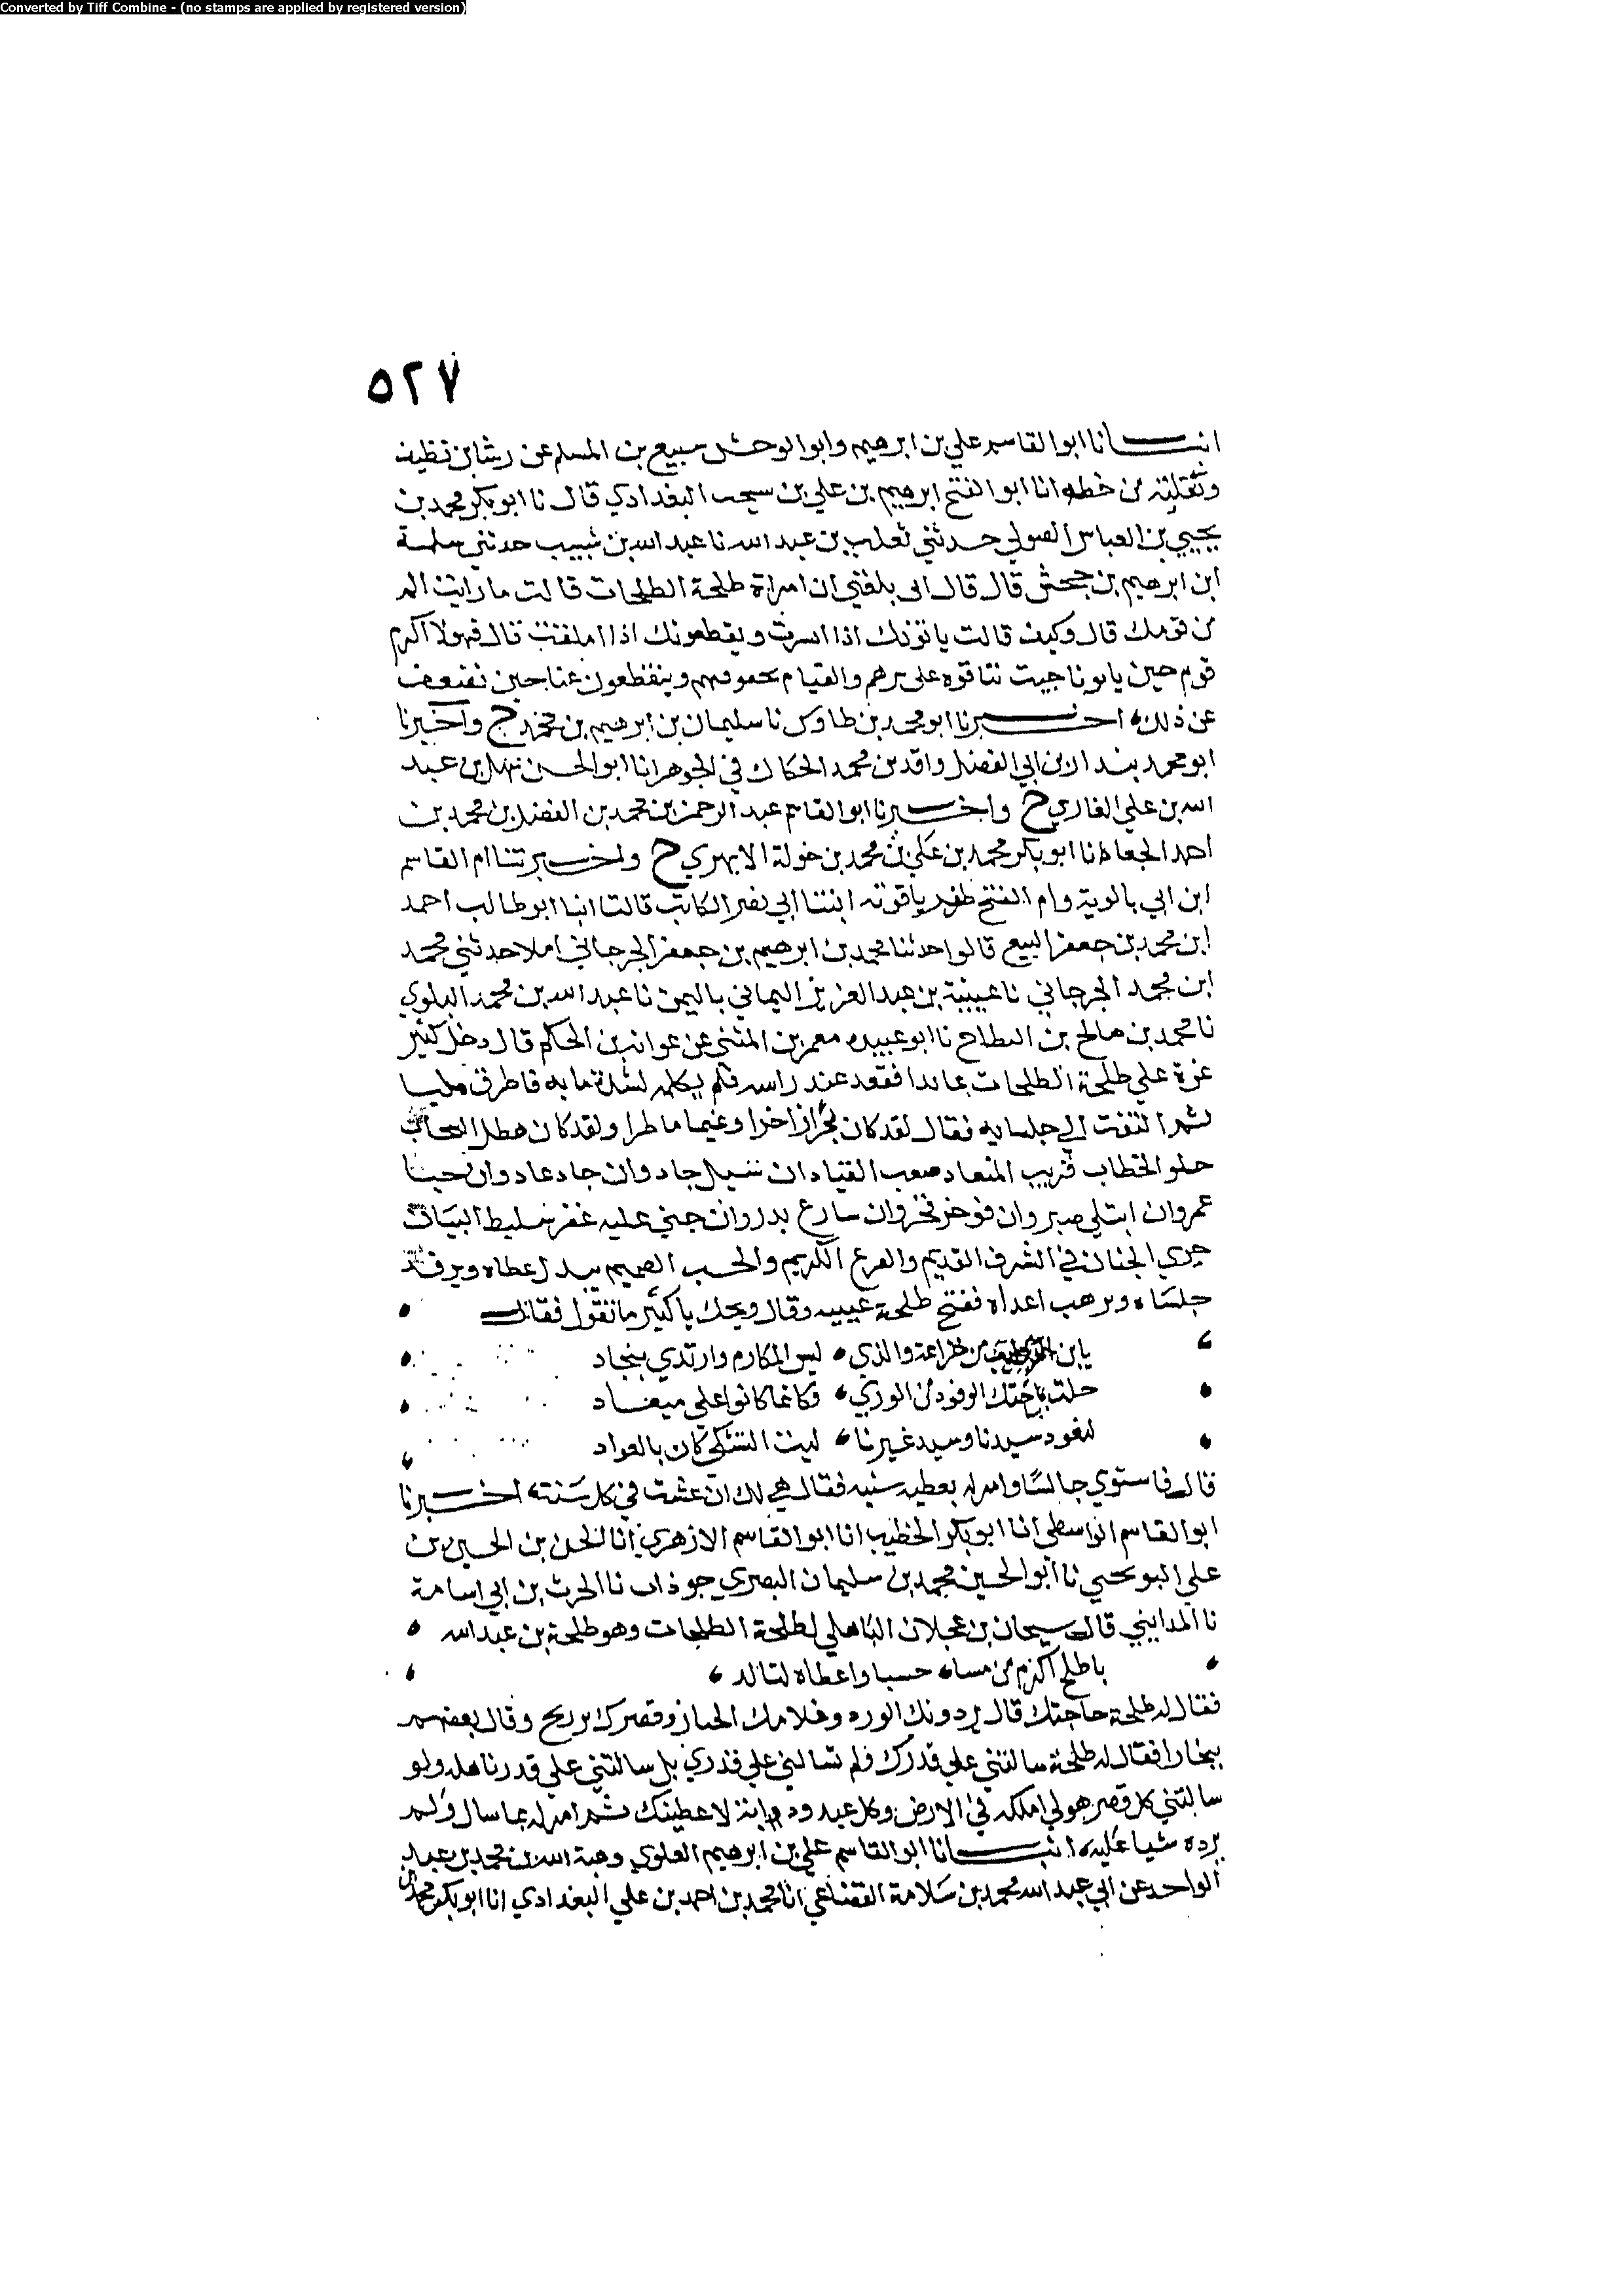 Converted by Tiff Combine - (no stamps are applied by registered version)
٥٢٧
انبــانا ابوا القاسم علي بن ابرهيم وابوا لوحش سبيع بن المسلم عن رشابن نظيف
ونقلته من خطه انا ابوا الفتح ابرهيم بن علي بن سيجب البغدادي قال نا ابو بكر محمد بن
يحيي بن العباس الصولي حدثني ثعلب بن عبد الله نا عبد الله بن شبيب حدثني سلمة
ابن ابرهيم بن جحش قال قال ابى بلغني ان امراة طلحة الطلحات قالت ما رايت الم
من قومك قال وكيف قالت ياتونك اذا ايسرت ويقطعونك اذا املقت قال فهولا اكرم
قوم حين ياتونا حيث بنا قوه على برهم والقيام بحقوقهم وينقطعون عنا حين نضعف
عن ذلك اخبرنا ابو محمد بن طاوس نا سليمان بن ابرهيم بن محمد ح واخبرنا
ابو محمد بندار بن ابي الفضل واقد بن محمد الحكاك في الجوهر انا ابوا الحسن سهل بن عبد
الله بن علي الغازي ح واخبرنا ابوا القاسم عبد الرحمن بن محمد بن الفضل بن محمد بن
احمد الجعاط انا ابو بكر محمد بن علي بن محمد بن خولة الابهري ح واخبرتنا ام القاسم
ابن ابي بالوية وام الفتح ظفر ياقوته ابنتا ابي نصر الكاتب قالت انبا ابو طالب احمد
ابن محمد بن جعفر البيع قالوا حدثنا محمد بن ابرهيم بن جعفر الجرجاني املا حدثني محمد
ابن محمد الجرجاني نا عيينة بن عبد العزيز اليماني باليمن نا عبد الله بن محمد البلوي
نا محمد بن صالح بن البطاح نا ابو عبيده معمر بن المثني عن عوانه بن الحكم قال دخل كثير
عزة علي طلحة الطلحات عايدا فقعد عند راسه فلم يكلمه لشدة ما به فاطرق مليا
ثم التفت الي جلسايه فقال لقد كان بحرا زاخرا وغيما ماطرا ولقد كان هطل السحاب
حلو الخطاب قريب الميعاد صعب القياد ان سيل جاد وان جاد عاد وان حبا
عمر وان ابتلي صبر وان فوخر فخر وان سارع بدر وان جني عليه غفر سليط البيان
جري الجنان في الشرف القديم والفرع الكريم والحسب الصميم يبدل عطاه ويرفد
جلساه ويرهب اعداه ففتح طلحة عينيه وقال ويحك يا كثير ما تقول فقال
يابن الذوايب من خزاعة والذي لبس المكارم وارتدي بنجاد
حلت بساحتك الوفود من الوري فكانما كانوا علي ميعاد
لنعود سيدنا وسيد غيرنا ليت التشكي كان بالعواد
قال فاستوي جالسًا وامر له بعطيه سنيه فقال هي لك ان عشت في كل سنة اخبرنا
ابوا القاسم الواسطي انا ابو بكر الخطيب انا ابوا القاسم الازهري انا الحسن بن الحسين بن
علي النوبختي نا ابوا الحسين محمد بن سليمان البصري جوذاب نا الحرث بن ابي اسامة
نا المدايني قال سحبان بن عجلان الباهلي لطلحة الطلحات وهو طلحة بن عبد الله
يا طلح اكرم من مساه حسبا واعطاه لتالد
فقال له طلحة حاجتك قال بردونك الورد وغلامك الخباز وقصرك بزرنج وقال بعضهم
ببخارا فقال له طلحة سالتني علي قدرك فلم تسالني علي قدري بل سالتني علي قدر باهله ولو
سالتني كل قصر هو لي املكه في الارض وكل عبد ودابة لاعطيتك ثم امر له بما سال ولم
يرده شيا عليه انبــانا ابوا القاسم علي بن ابرهيم العلوي وهبة الله بن محمد بن عبد
الواحد عن ابي عبد الله محمد بن سلامة القضاعي انا محمد بن احمد بن علي البغدادي انا ابو بكر محمد بن